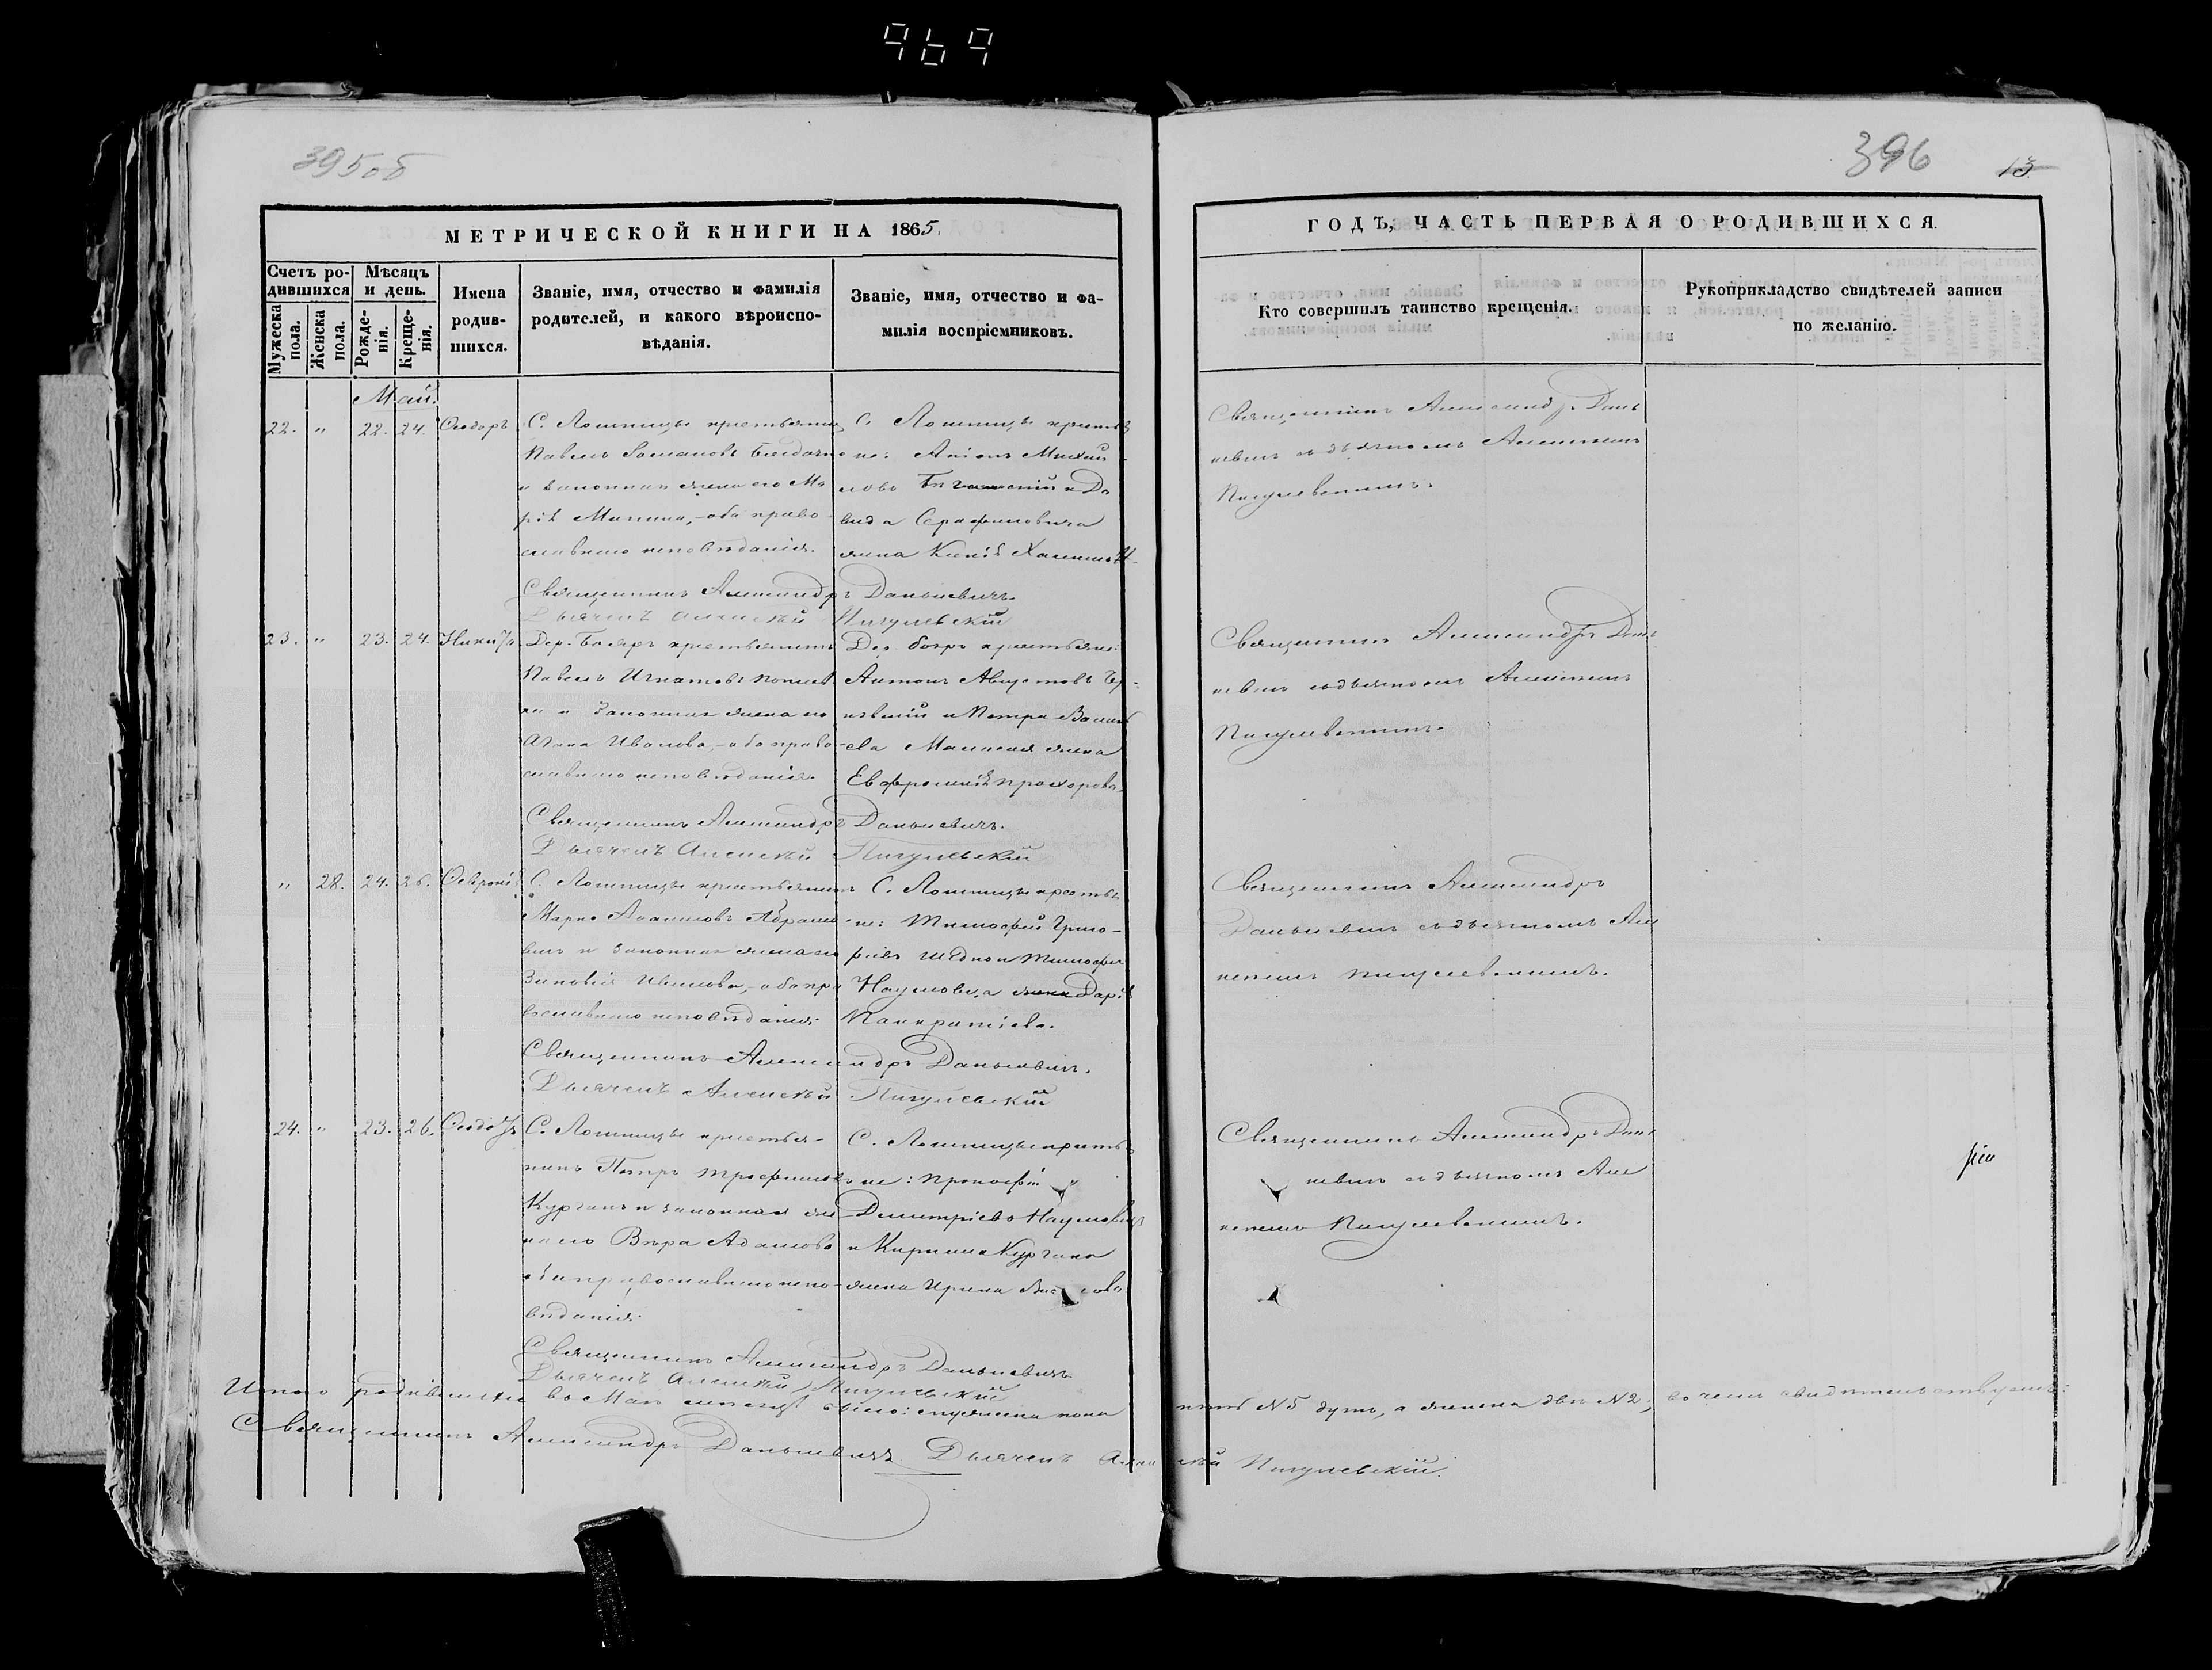 969
395об
МЕТРИЧЕСКОЙ КНИГИ НА 1865.
Счетъ родившихся
Мѣсяцъ и день.
Мужеска пола.
Женска пола.
Рожденія.
Крещенія.
Имена родившихся.
Званіе, имя, отчество и фамилія
родителей, и какого вѣроиспо-
вѣданія.
Званіе, имя, отчество и фа-
милія воспріемниковъ.
Май.
22. " 22. 24. Ѳеодоръ
С. Лошницы крестьянинъ
Павелъ
и законная жена его Ма
рія Минина, оба право
славнаго исповѣданія.
С. Лошницы крестья
не: Михай
ловъ и Да
вида Серафимовича
жена
Священникъ Александръ Данькевичъ.
Дьячекъ Алексѣй Пигулевскій
23. " 23. 24. Никита
Дер. Бояръ крестьянинъ
Павелъ Игнатовъ
и законная жена его
Иванова, оба право
славнаго исповѣданія.
Дер. Бояръ крестьяне:
Антонъ Августовъ
и Петра
жена
Евфросинія Прохорова.
Священникъ Александръ Данькевичъ.
Дьячекъ Алексѣй Пигулевскій
" 28. 24. 26. Ѳевронія
С. Лошницы крестьянинъ
Марко Абрамо
вичъ и законная жена его
Зиновія Иванова, оба пра
вославнаго исповѣданія.
С. Лошницы крестья
не: Тимофей Григо-
рьевъ и Тимофея
Наумовца жена Дарія
Панкратіева.
Священникъ Александръ Данькевичъ.
Дьячекъ Алексѣй Пигулевскій
24. " 23. 26. Ѳеодотъ
С. Лошницы крестья-
нинъ Петръ Трофимовъ
Курганъ и законная же
на его Вѣра Адамова
оба православнаго испо-
вѣданія.
С. Лошницы крестья
не: Прокофій
Димитріевъ Наумовецъ
и Кирилла Кургана
жена Ирина
Священникъ Александръ Данькевичъ.
Дьячекъ Алексѣй Пигулевскій
Итого родившихся въ Маѣ мѣсяцѣ было: мужеска пола
Священникъ Александръ Данькевичъ. Дьячекъ Алексѣй Пигулевскій.
396
13
ГОДЪ, ЧАСТЬ ПЕРВАЯ О РОДИВШИХСЯ.
Кто совершилъ таинство крещенія.
Рукоприкладство свидѣтелей записи
по желанію.
Священникъ Александръ Дань
кевичъ съ дьячкомъ Алексѣемъ
Пигулевскимъ.
Священникъ Александръ Дань
кевичъ съ дьячкомъ Алексѣемъ
Пигулевскимъ.
Священникъ Александръ
Данькевичъ съ дьячкомъ Але
ксѣемъ Пигулевскимъ.
Священникъ Александръ Дань
кевичъ съ дьячкомъ Але
ксѣемъ Пигулевскимъ.
пять №5 душъ, а женска двѣ №2, въ чемъ свидѣтельствуемъ: